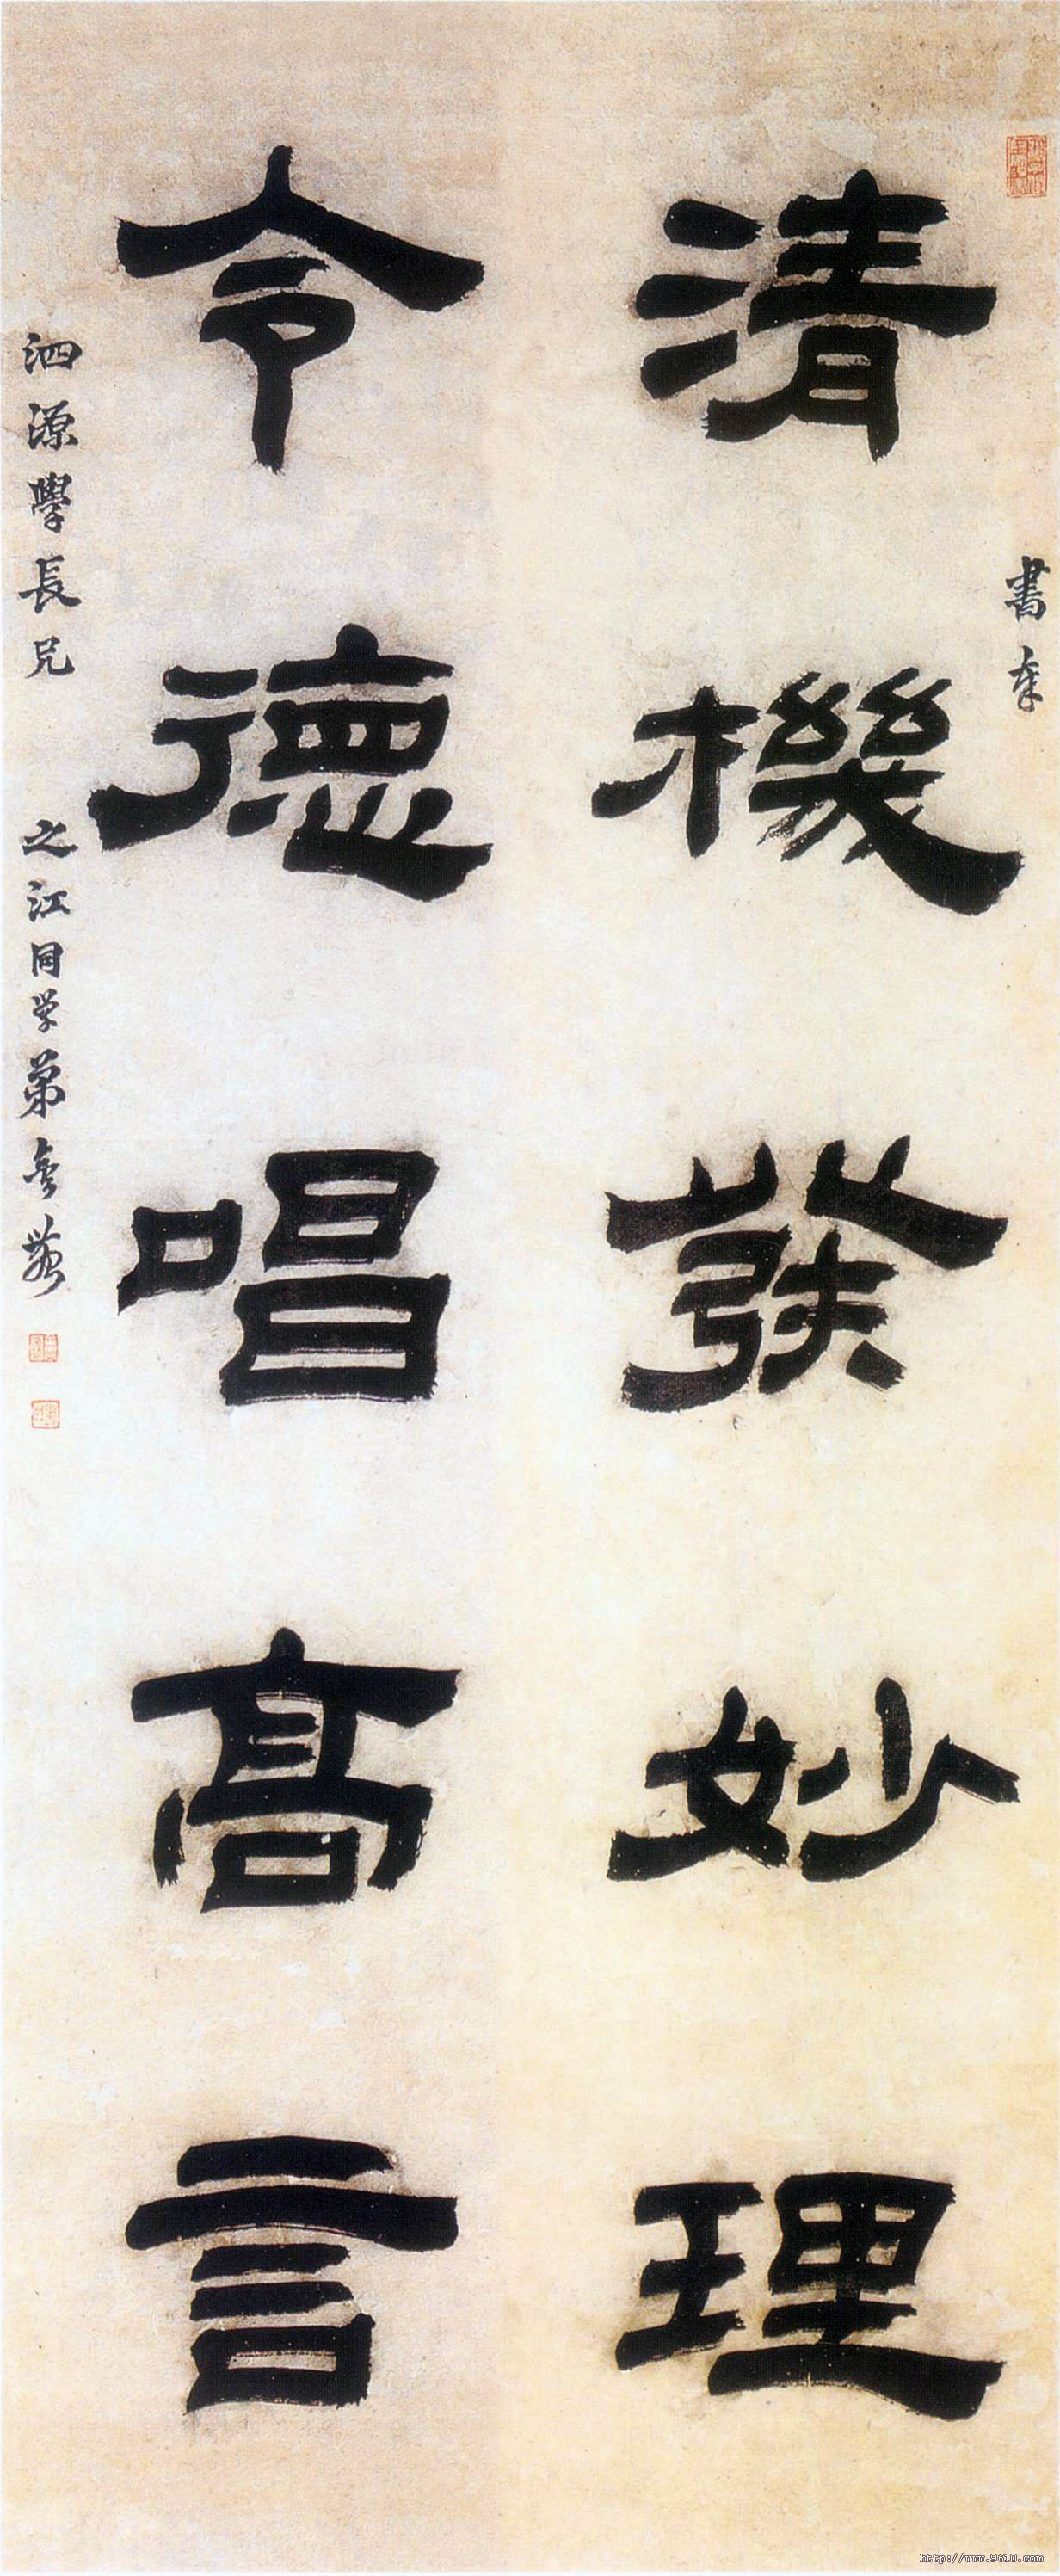 書奉
清機發妙理
令德唱高言
泗源學長兄
之江同学弟金農
http://www.9610.com